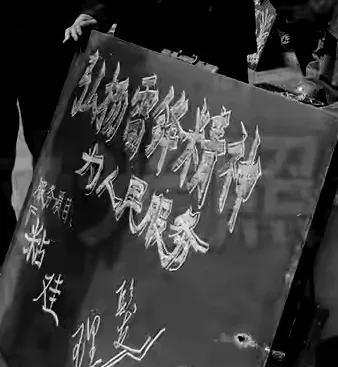 弘扬雷锋精神
为人民服务
服务项目
粘
理